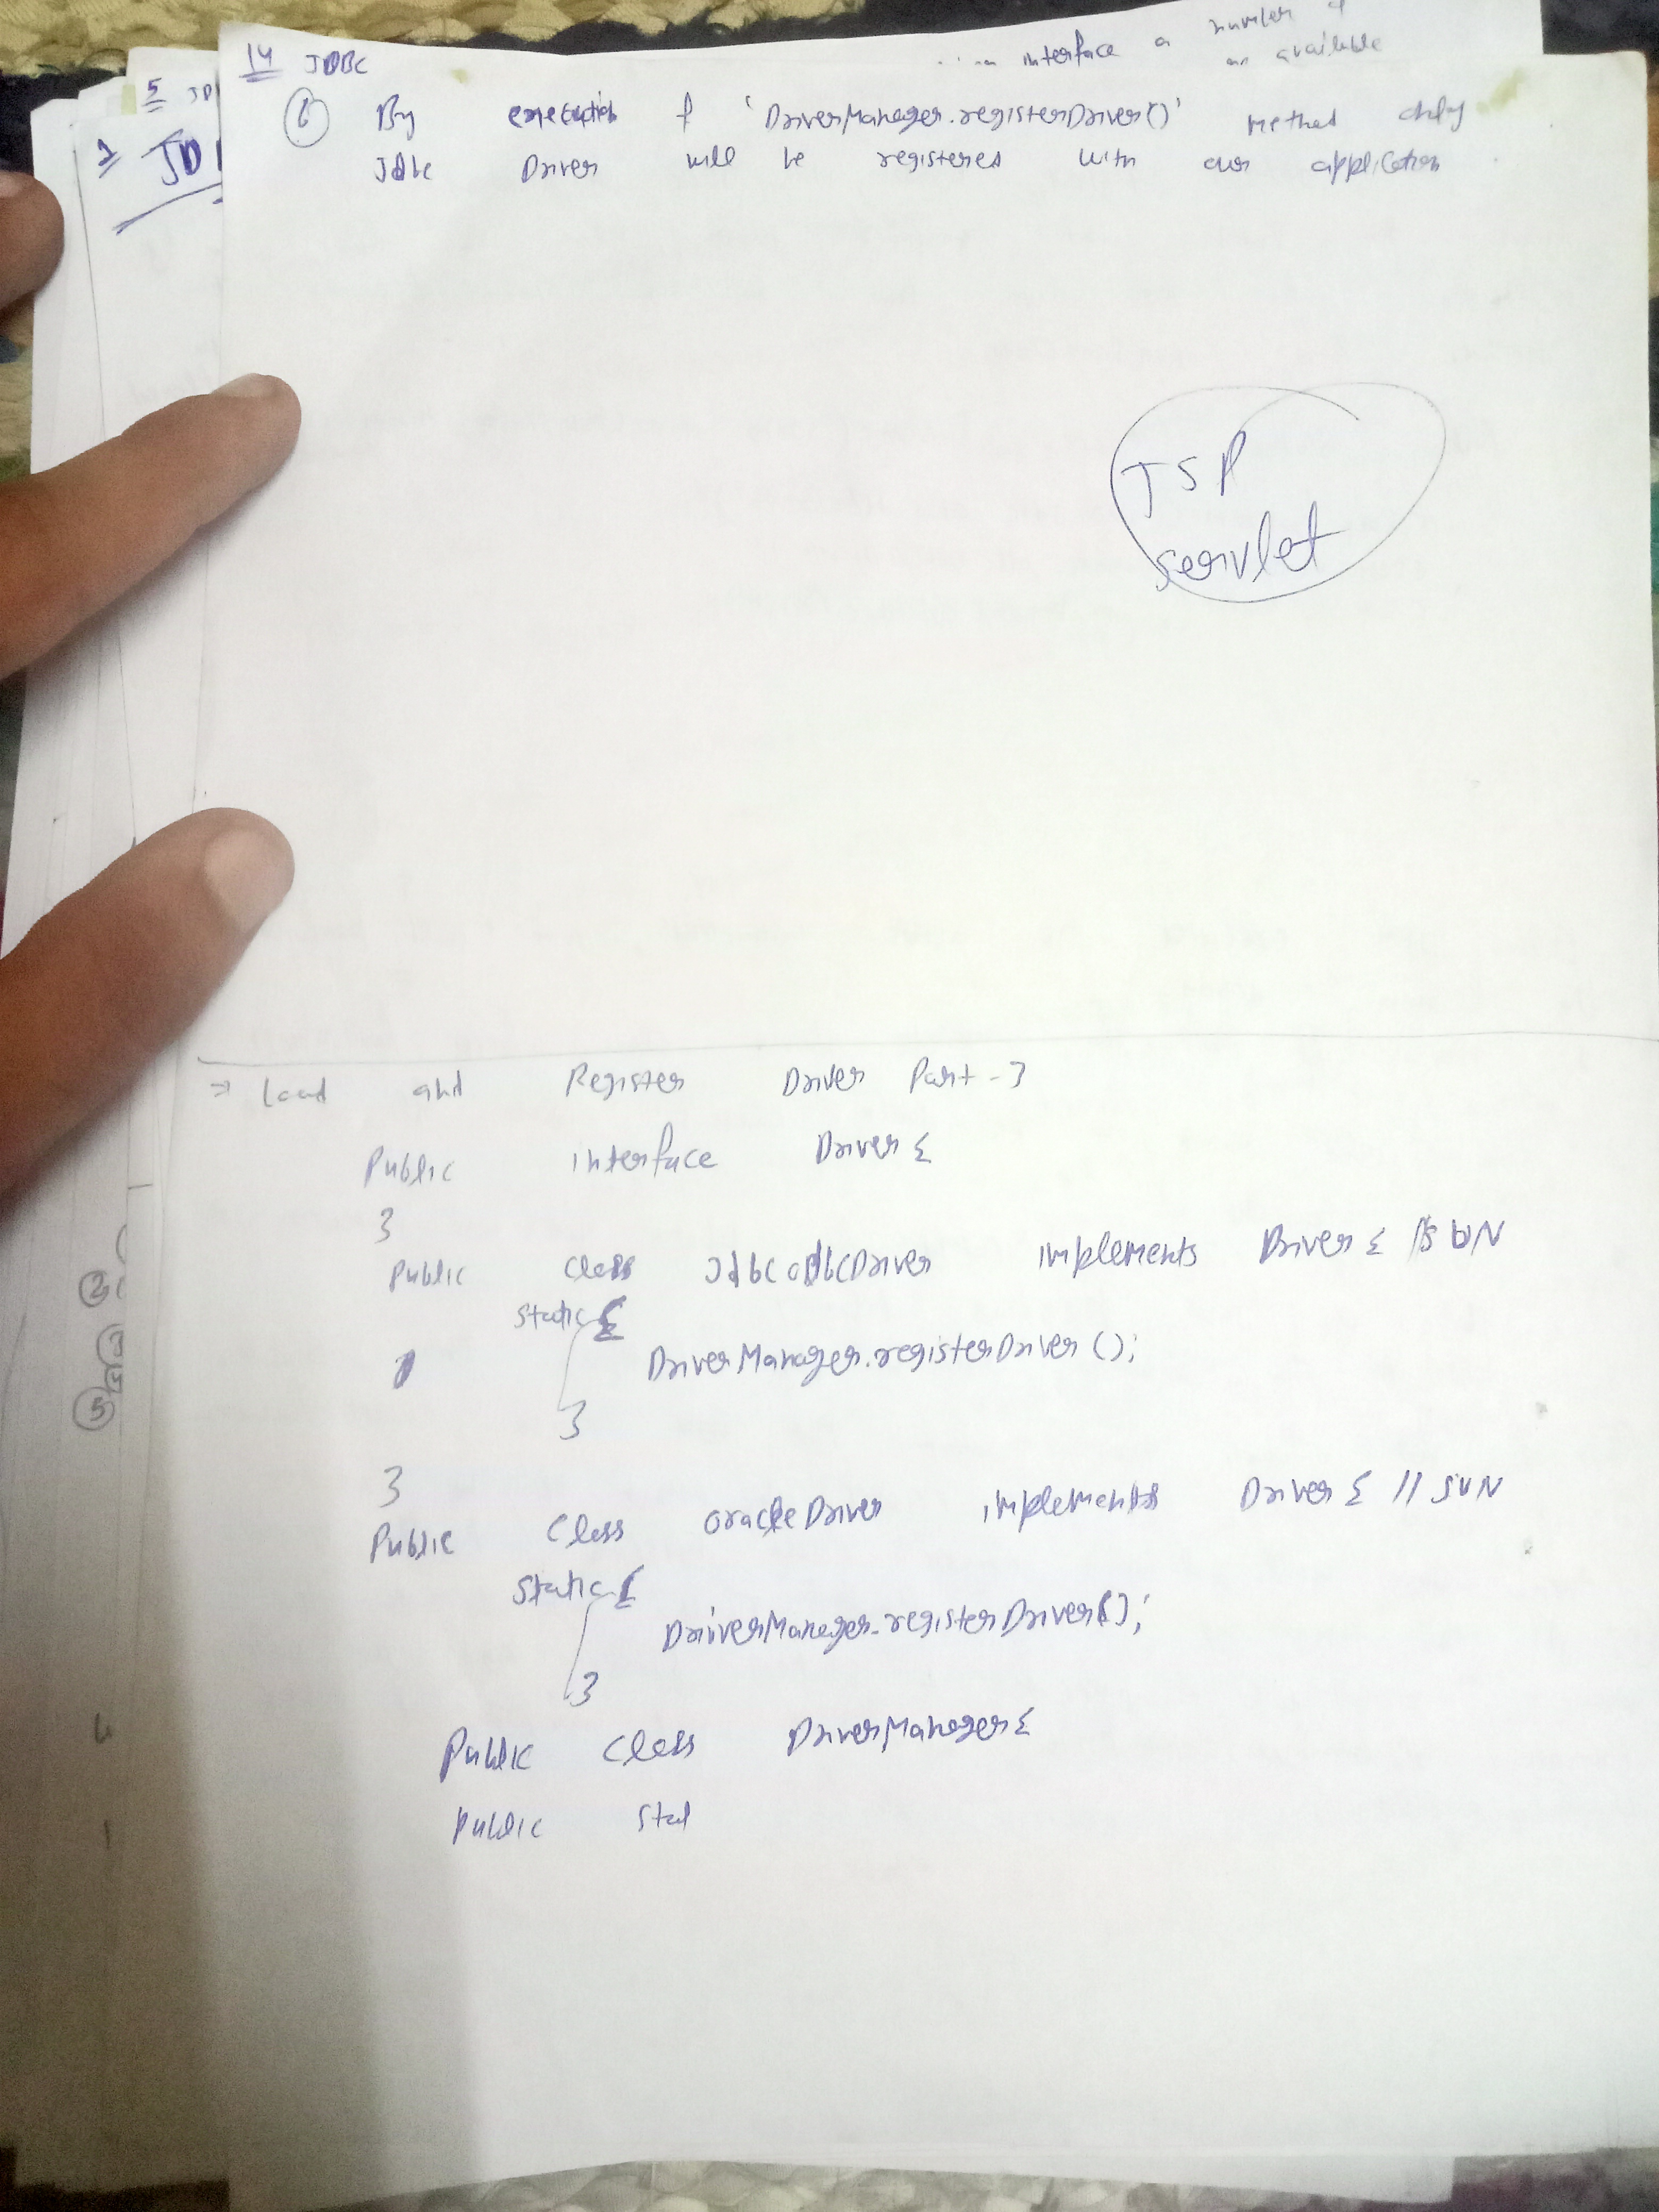 number of
interface a
an available
14 JDBC
5 JD
1 JD
6 By execution of 'DriverManager.registerDriver()' method only
Jdbc Driver will be registered with our application
JSP
servlet
⇒ Load and Register Driver Part - 3
Public interface Driver {
}
Public class JdbcodbcDriver implements Driver { // SUN
static {
DriverManager.registerDriver();
}
}
Public class oracleDriver implements Driver { // SUN
static {
DriverManager.registerDriver();
}
Public class DriverManager {
Public stat
2
3
5